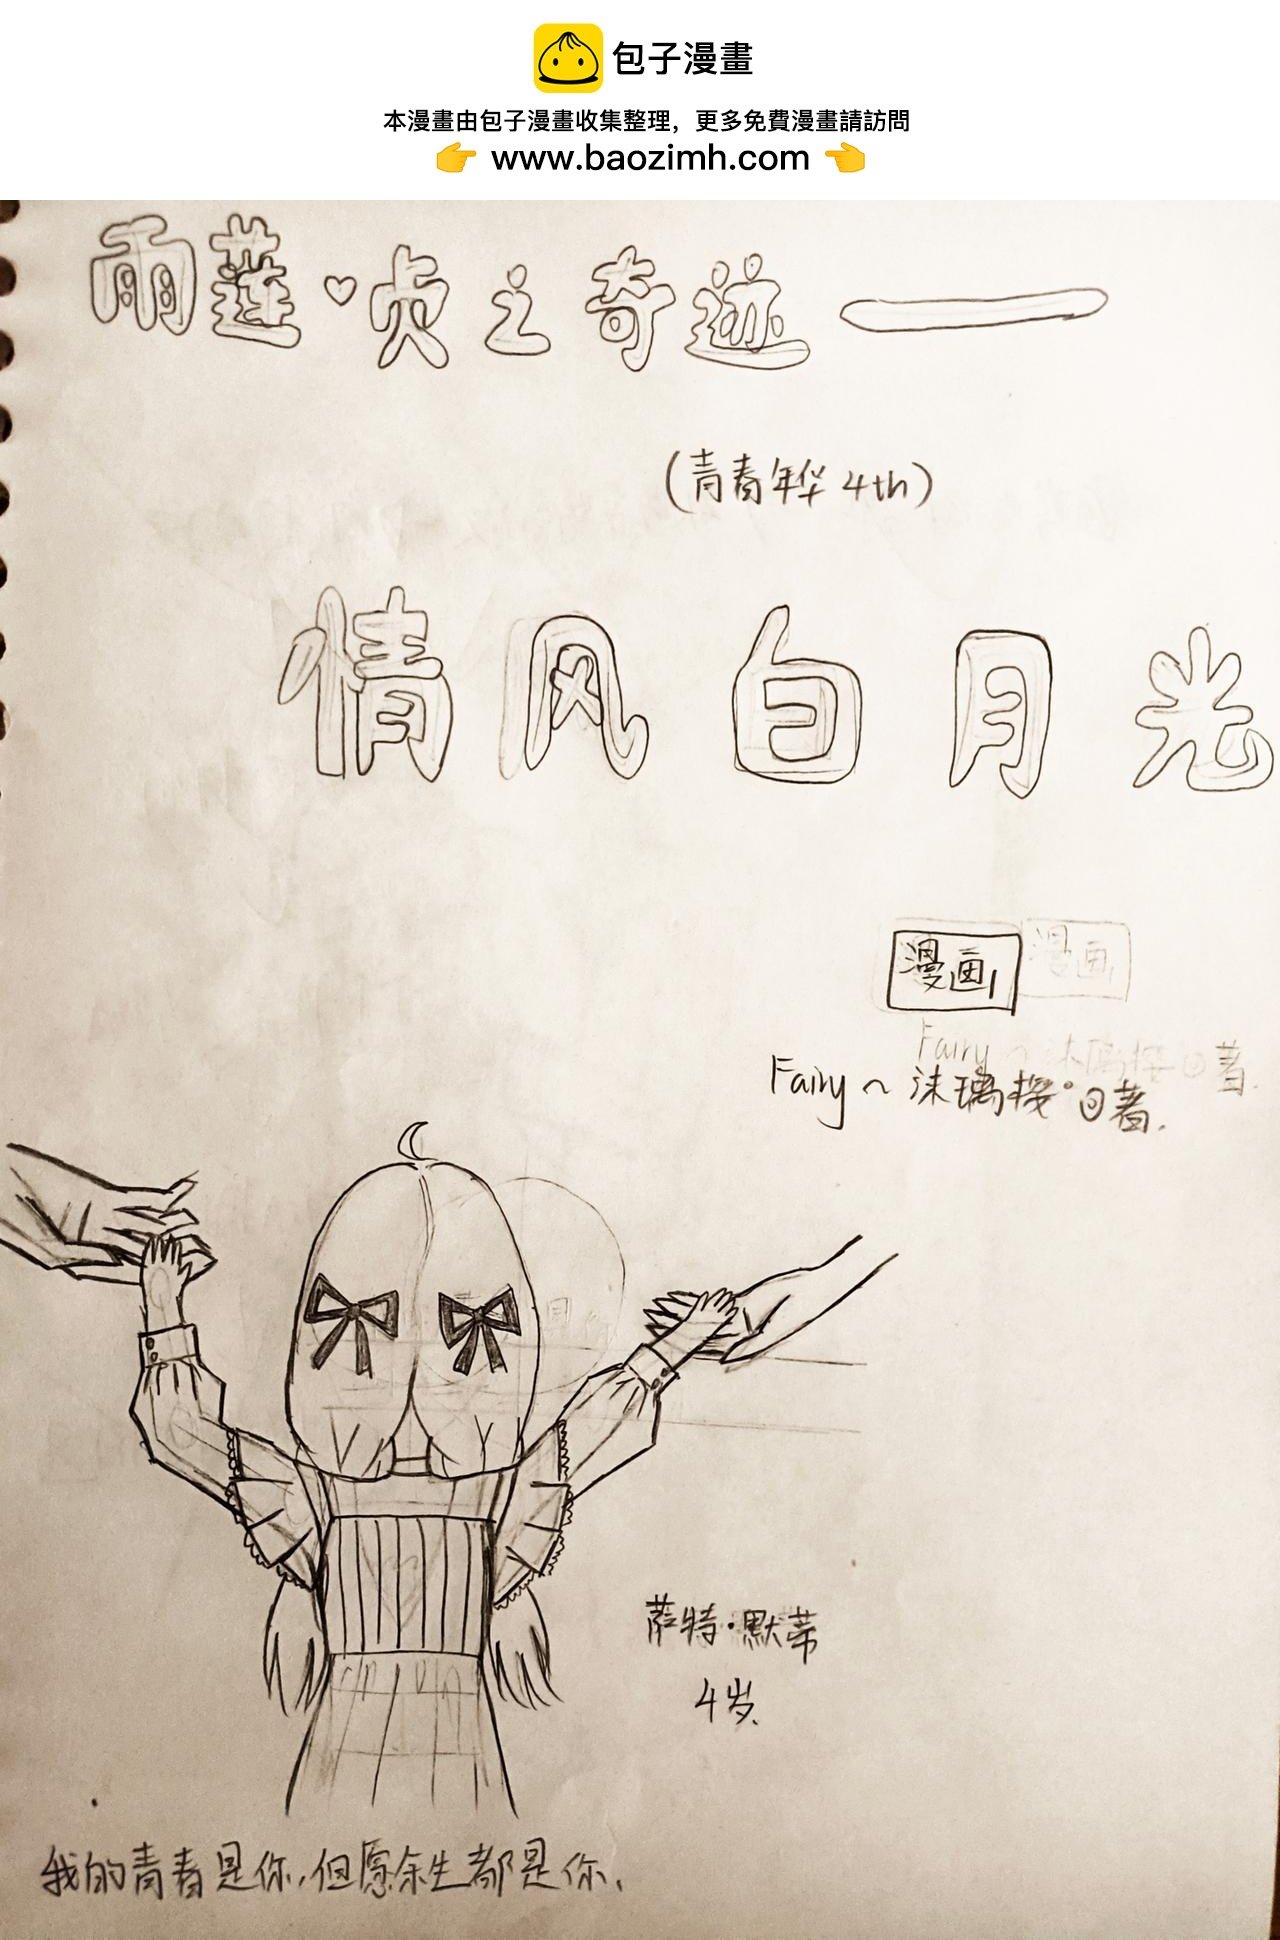 包子漫畫
本漫畫由包子漫畫收集整理，更多免費漫畫請訪問
👉 www.baozimh.com 👈
雨莲·♡贞之奇迹——
(青春年华 4th)
情风白月光
漫画 漫画
Fairy～沫璃 著
Fairy～沫璃 著.
萨特·默蒂
4岁.
我的青春是你,但愿余生都是你.